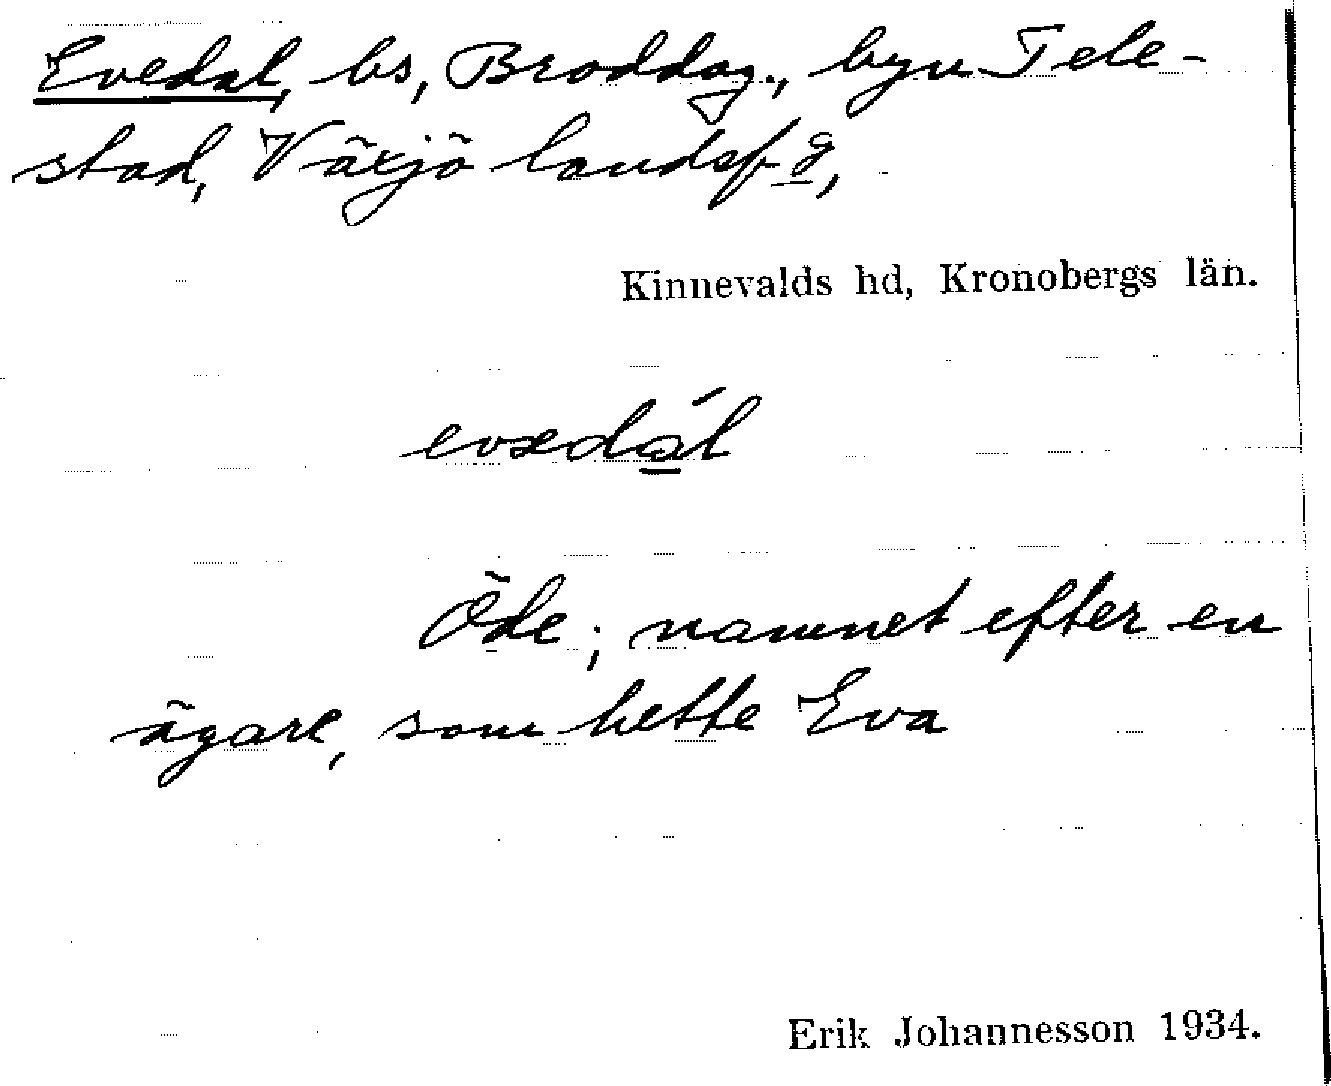 Evedal, bs, Broddag., byn Tele-
stad, Växjö landsfg,
Kinnevalds hd, Kronobergs län.
evædál
Öde; namnet efter en
ägare, som hette Eva
Erik Johannesson 1934.